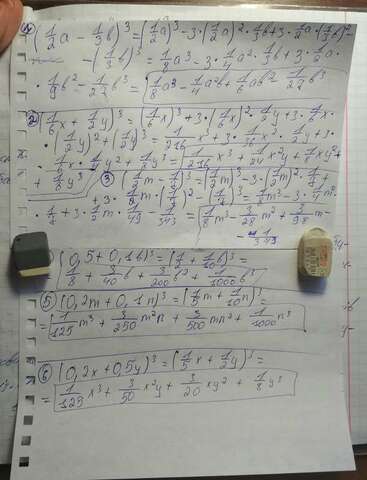 1 (1/2a - 1/3b)^3 = (1/2a)^3 - 3·(1/2a)^2·1/3b + 3·1/2a·(1/3b)^2
- (1/3b)^3 = 1/8a^3 - 3·1/4a^2·1/3b + 3·1/2a·
·1/9b^2 - 1/27b^3 = 1/8a^3 - 1/4a^2b + 1/6ab^2 - 1/27b^3
2 (1/6x + 1/2y)^3 = (1/6x)^3 + 3·(1/6x)^2·1/2y + 3·1/6x·
·(1/2y)^2 + (1/2y)^3 = 1/216x^3 + 3·1/36x^2·1/2y + 3·
·1/6x·1/4y^2 + 1/8y^3 = 1/216x^3 + 1/24x^2y + 1/8xy^2 +
+ 1/8y^3
3 (1/2m - 1/7)^3 = (1/2m)^3 - 3·(1/2m)^2·1/7 +
+ 3·1/2m·(1/7)^2 - (1/7)^3 = 1/8m^3 - 3·1/4m^2·
·1/7 + 3·1/2m·1/49 - 1/343 = 1/8m^3 - 3/28m^2 + 3/98m -
- 1/343
(0,5 + 0,1b)^3 = (1/2 + 1/10b)^3 =
1/8 + 3/40b + 3/200b^2 + 1/1000b^3
5 (0,2m + 0,1n)^3 = (1/5m + 1/10n)^3 =
= 1/125m^3 + 3/250m^2n + 3/500mn^2 + 1/1000n^3
6 (0,2x + 0,5y)^3 = (1/5x + 1/2y)^3 =
= 1/125x^3 + 3/50x^2y + 3/20xy^2 + 1/8y^3